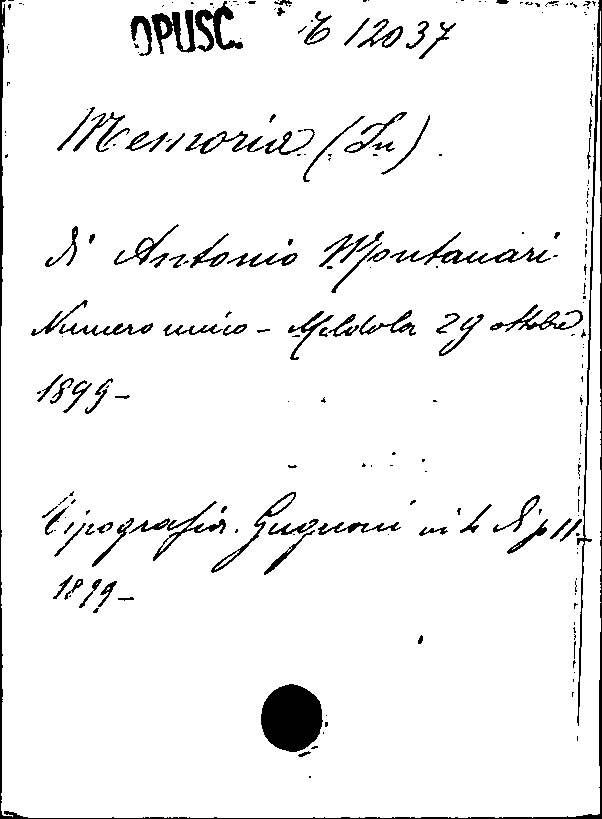 OPUSC. E 12037
Memoria (In)
di Antonio Montanari
Numero unico - Meldola 29 ottobre
1899 -
Tipografia Gugnoni in 4 di p 11.
1899 -